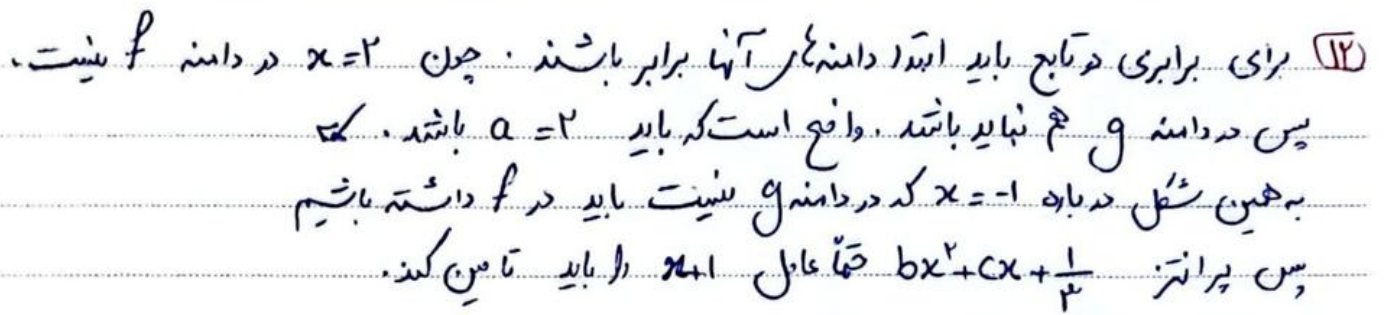 ۱۲ برای برابری دو تابع باید ابتدا دامنه‌های آنها برابر باشند. چون x=۲ در دامنه f نیست.
پس در دامنه g هم نباید باشد. واضح است که باید a=۲ باشد.
به همین شکل درباره x=-۱ که در دامنه g نیست باید در f داشته باشیم
پس پرانتز bx²+cx+۱/۳ حتماً عامل x+۱ را باید تامین کند.